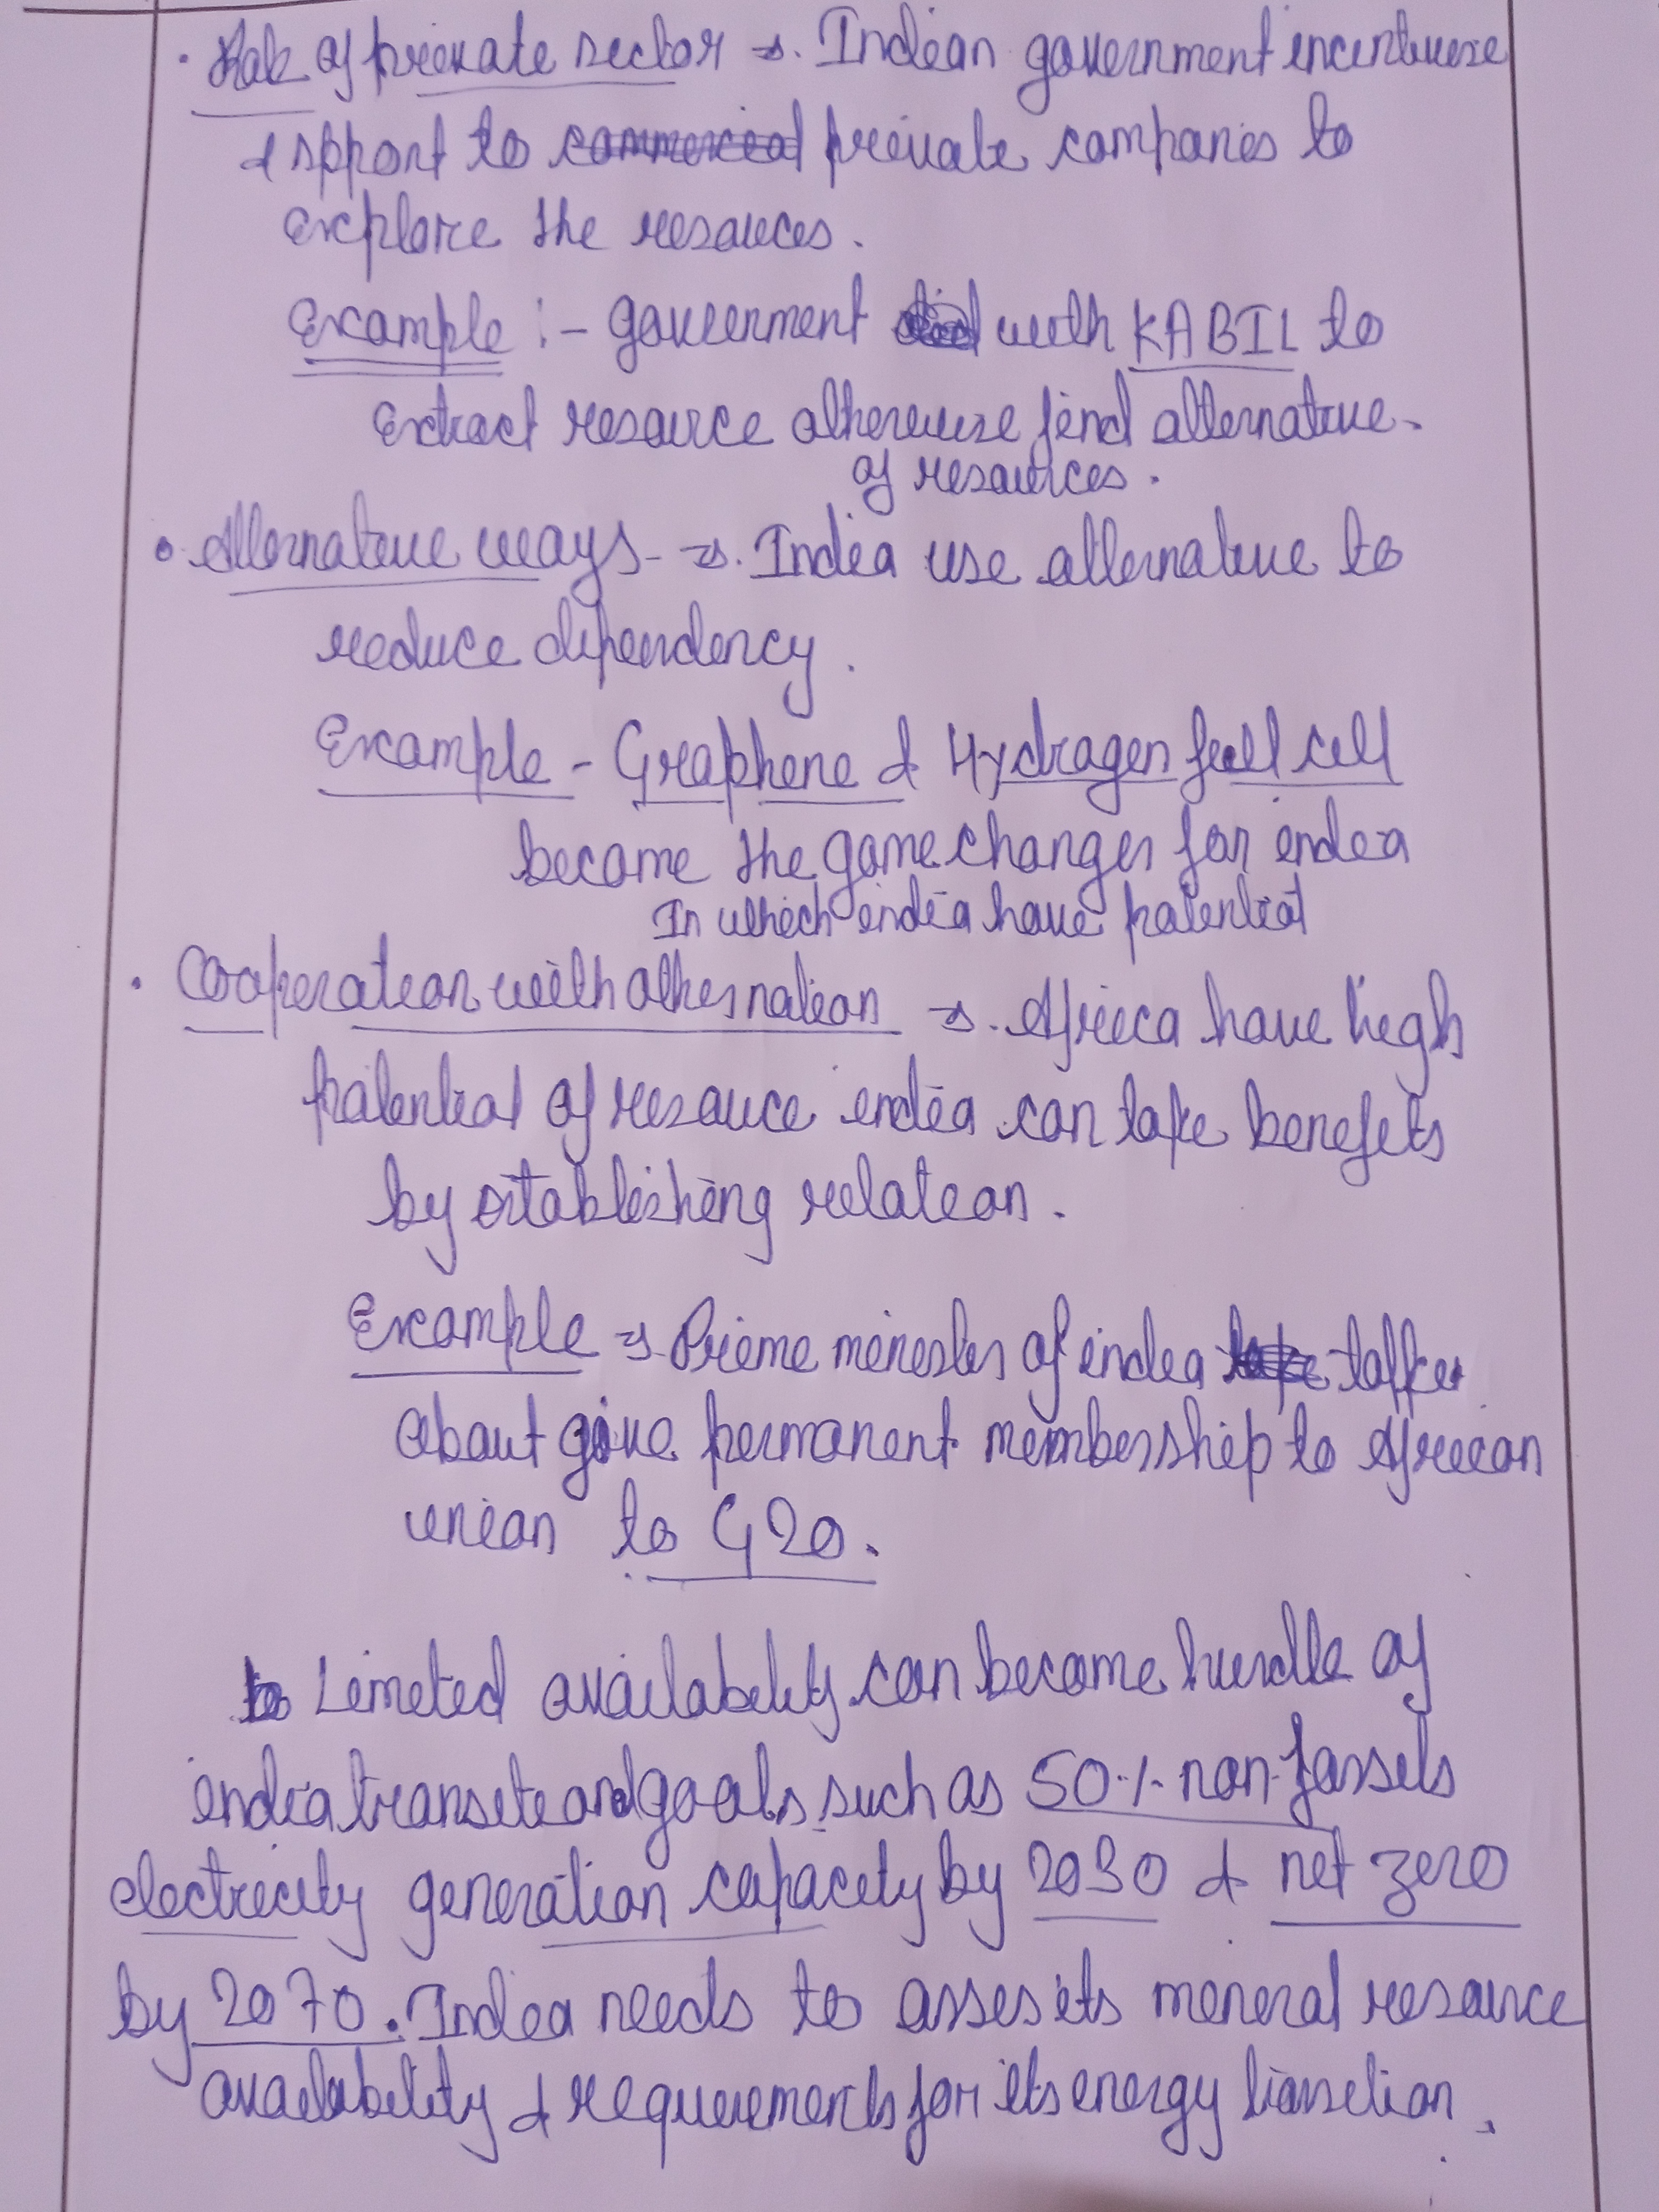 • Role of private sector → Indian government incentivize
& spport to private companies to
explore the resources.
Example :- government with KABIL to
extract resource otherwise find alternative
of resources.
• Alternative ways → India use alternative to
reduce dependency.
Example - Graphene & Hydrogen fuel cell
become the game changer for india
In which india have potential
• Cooperation with other nation → Africa have high
potential of resource india can take benefits
by establishing relation.
Example → Prime minister of india talked
about give permanent membership to African
union to G20.
Limited availability can become hurdle of
india goals such as 50% non-fossils
electricity generation capacity by 2030 & net zero
by 2070. India needs to asses its mineral resource
availability & requirements for its energy transition.